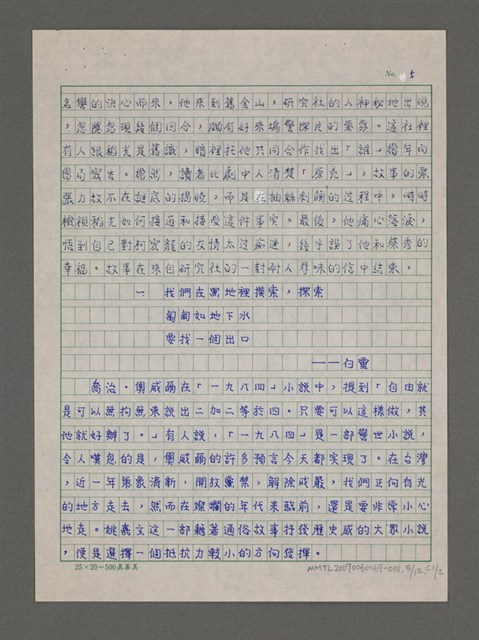 No. 5
名響的決心而來。他來到舊金山,研究社的人神秘地出現
,忽隱忽現幾個回合,頗有好來塢警探片的氣氛。這社裡
有人跟楊光是舊識,暗裡托他共同合作找出「誰」當年向
當局密告。據說,讀者比劇中人清楚「原兇」,故事的緊
張力故不在謎底的揭曉,而是在抽絲剝繭的過程中,時時
檢視楊光如何接近和接受這件事實。最後,他痛心落淚,
悟到自己對柯宏龍的友情太過痴迷,幾乎誤了他和蔡秀的
幸福。故事在來自研究社的一封耐人尋味的信中結束。
一 我們在黑地裡摸索,探索
匍匐如地下水
要找一個出口
——白靈
喬治・奧威爾在「一九八四」小說中,提到「自由就
是可以無拘無束說出二加二等於四。只要可以這樣做,其
他就好辦了。」有人說,「一九八四」是一部警世小說,
令人嘆息的是,奧威爾的許多預言今天都實現了。在台灣
,近一年氣象清新,開放黨禁,解除戒嚴,我們正向有光
的地方走去,然而在燦爛的年代未臨前,還是要非常小心
地走。姚嘉文這一部藉著通俗故事抒發歷史感的大眾小說
,便是選擇一個抵抗力較小的方向發揮。
25×20=500眞善美
NMTL20090060069-001, 5/12, C1/2